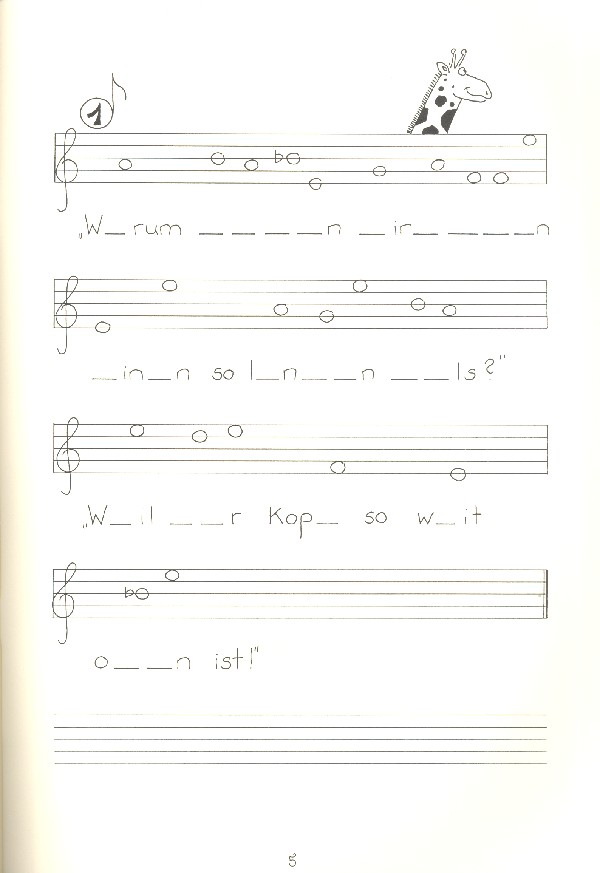 1
„W_ rum _ _ _ _n _ir_ _ _ _n
_in_n so l_n_ _n _ _ls?"
„W_il _ _r Kop_ so w_it
o_ _n ist!"
5